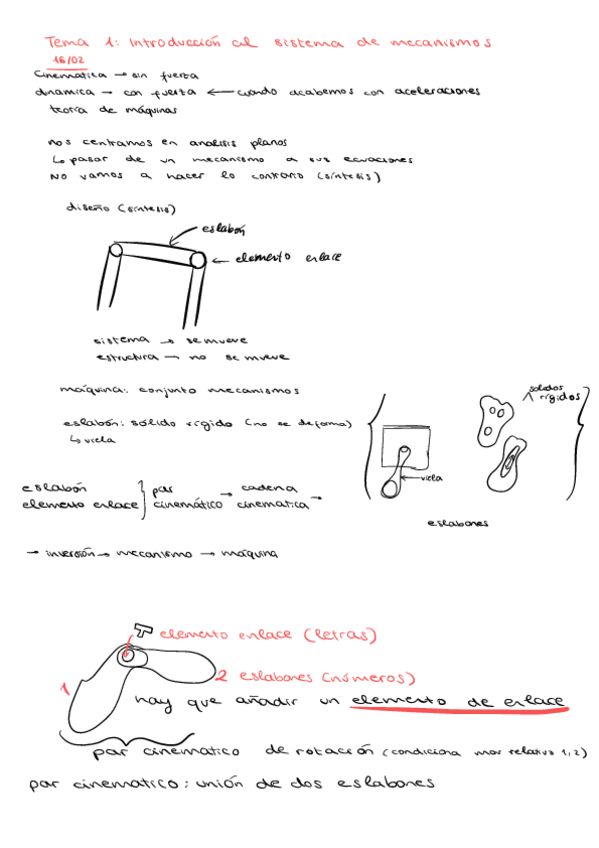 Tema 1: Introducción al sistema de mecanismos
16/02
Cinemática → sin fuerza
dinámica → con fuerza ← cuando acabemos con aceleraciones
teoría de máquinas
nos centramos en analisis planos
↳ pasar de un mecanismo a sus ecuaciones
NO vamos a hacer lo contrario (síntesis)
diseño (síntesis)
eslabón
← elemento enlace
sistema → se mueve
estructura → no se mueve
máquina: conjunto mecanismos
eslabón: sólido rígido (no se deforma)
↳ viela
sólidos
rígidos
viela
eslabones
eslabón
elemento enlace } par cinemático → cadena cinematica →
→ inversión → mecanismo → máquina
elemento enlace (letras)
1
2 eslabones (números)
hay que añadir un elemento de enlace
par cinematico de rotación (condiciona mov relativo 1,2)
par cinematico: unión de dos eslabones